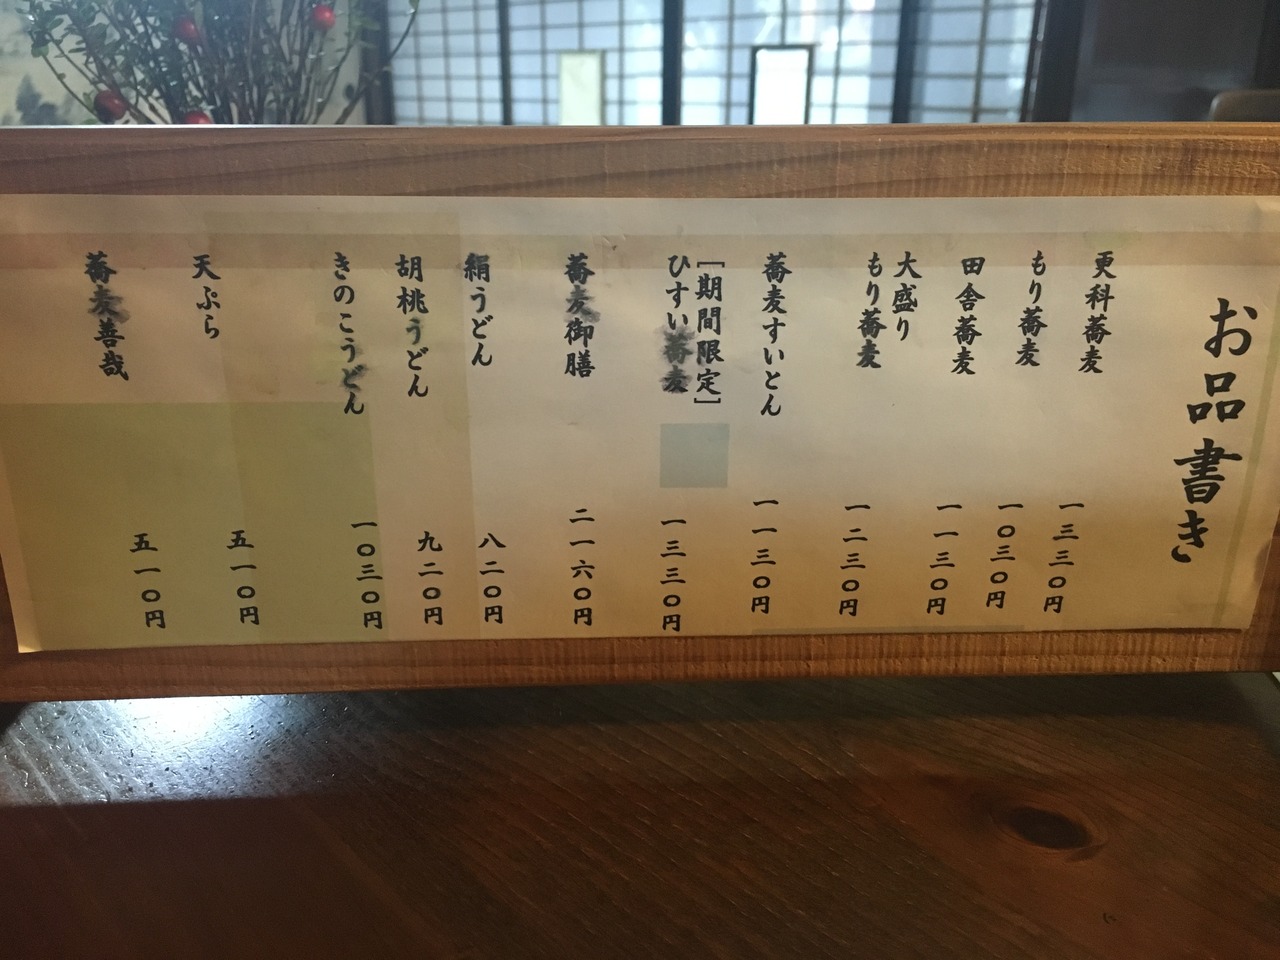 お品書き
更科蕎麦 一三三〇円
もり蕎麦 一〇三〇円
田舎蕎麦 一一三〇円
大盛り
もり蕎麦 一二三〇円
蕎麦すいとん 一一三〇円
[期間限定]
ひすい蕎麦 一三三〇円
蕎麦御膳 二一六〇円
絹うどん 八二〇円
胡桃うどん 九二〇円
きのこうどん 一〇三〇円
天ぷら 五一〇円
蕎麦善哉 五一〇円